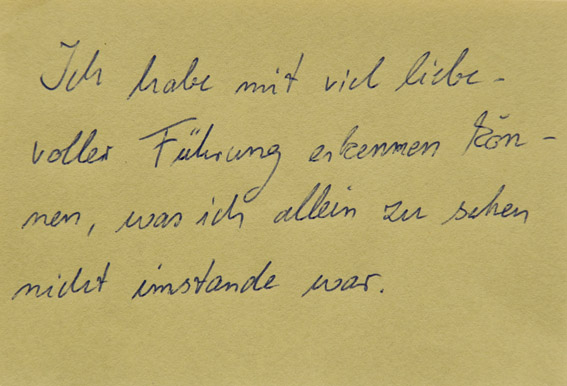 Ich habe mit viel liebe-
voller Führung erkennen kön-
nen, was ich allein zu sehen
nicht imstande war.